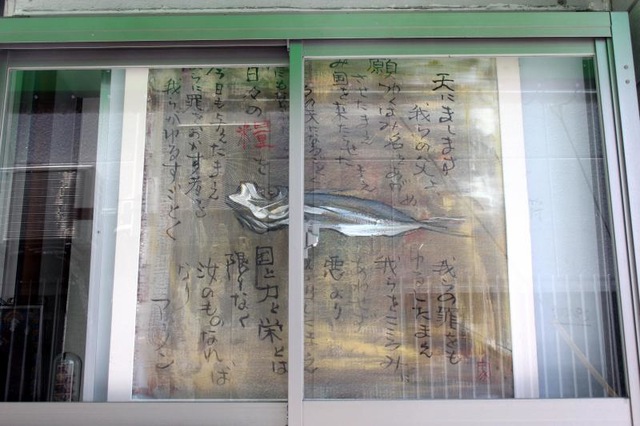 天にまします
我らの父よ
願わくはみ名をあがめ
させたまえ
み国を来たらせ
日々の糧を
今日も与えたまえ
らに罪をおかす者を
我らがゆるすごとく
我らの罪をも
ゆるしたまえ
我らをこころみに
あわせ
悪より
国と力と栄とは
限りなく
汝のものなれば
なり
アーメン